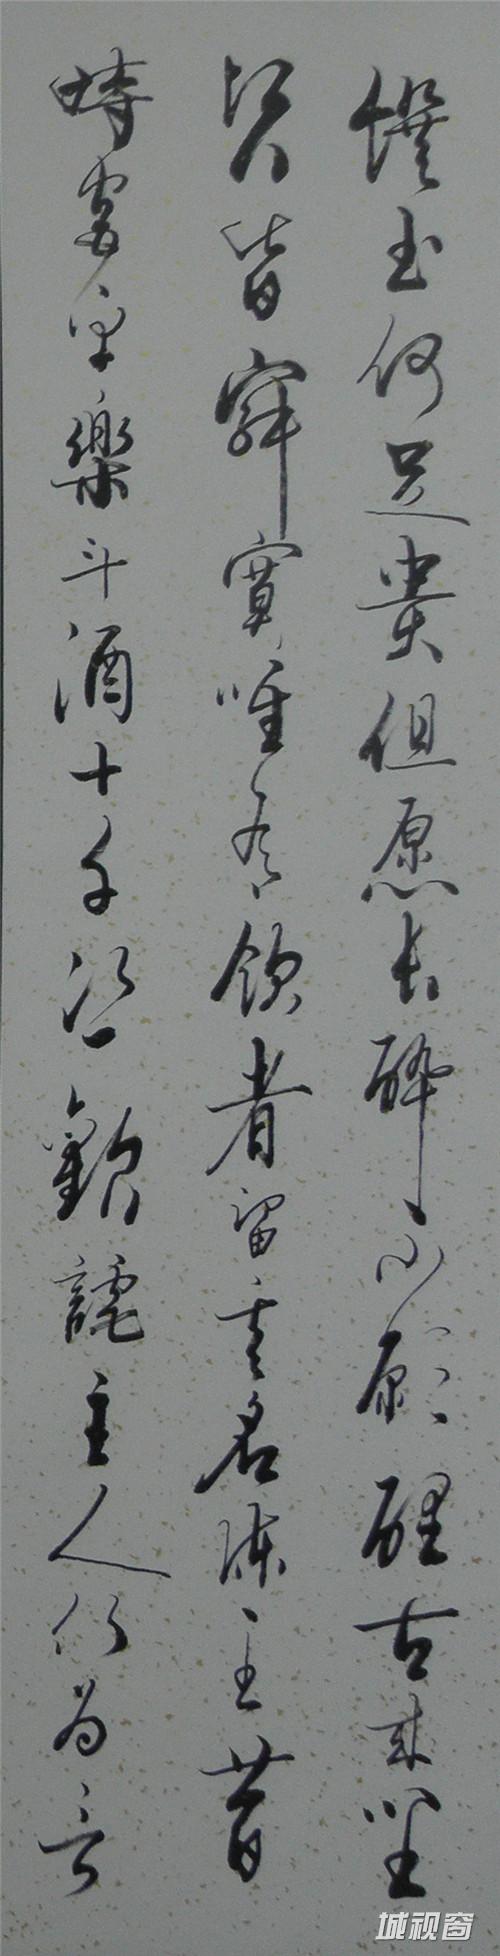 饌玉何足貴但愿长醉不願醒古来聖
賢皆寂寞唯有飲者留其名陳王昔
時宴平樂斗酒十千恣歡謔主人何為言
城视窗